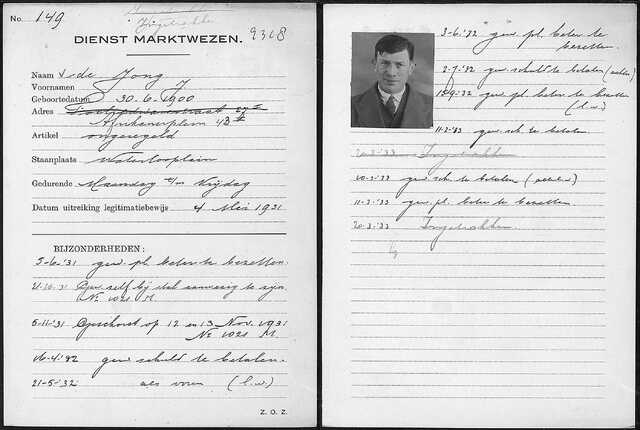 No. 149
Ingetrokken
9308
DIENST MARKTWEZEN.
Naam de Jong
Voornamen J
Geboortedatum 30-6-1900
Adres
Afrikanerplein 43
Artikel ongeregeld
Staanplaats Waterlooplein
Gedurende Maandag t/m Vrijdag
Datum uitreiking legitimatiebewijs 4 Mei 1931
BIJZONDERHEDEN:
3-6-'31 gew. pl. beter te bezetten.
21-10-31 Gew. zelf bij stal aanwezig te zijn
No 1021 M.
5-11-'31 Geschorst op 12 en 13 Nov. 1931
No 1021 M.
16-4-'32 gew. schuld te betalen.
21-5-'32 als voren (l.w.)
Z. O. Z.
3-6-'32 gew. pl. beter te
bezetten.
2-7-'32 gew. schuld te betalen
gew. pl. beter te bezetten
(l.w.)
11-2-'33 gew. sch. te betalen.
20-2-'33 Ingetrokken
10-3-'33 gew. sch. te betalen
11-3-'33 gew. pl. beter te bezetten.
20-3-'33 Ingetrokken.